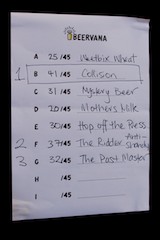 BEERVANA
A 25/45 Weetbix Wheat
1 B 41/45 Collison
C 31/45 Mystery Beer
D 20/45 Mothers Milk
E 30/45 Hop off the Press
2 F 37/45 The Riddler Anti-
3 G 32/45 The Past Master
H /45
I /45
J /45